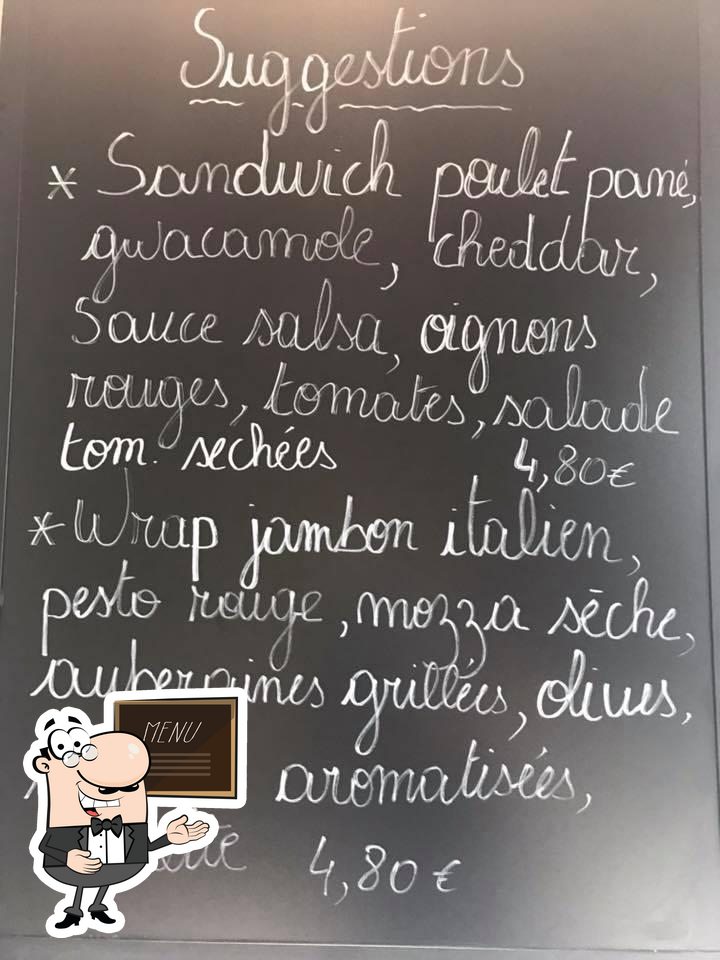 Suggestions
* Sandwich poulet pané,
gwacamole, cheddar,
sauce salsa, oignons
rouges, tomates, salade
tom. sechées 4,80€
* Wrap jambon italien,
pesto rouge, mozza sèche,
aubergines grillées, olives,
MENU
aromatisées,
4,80€